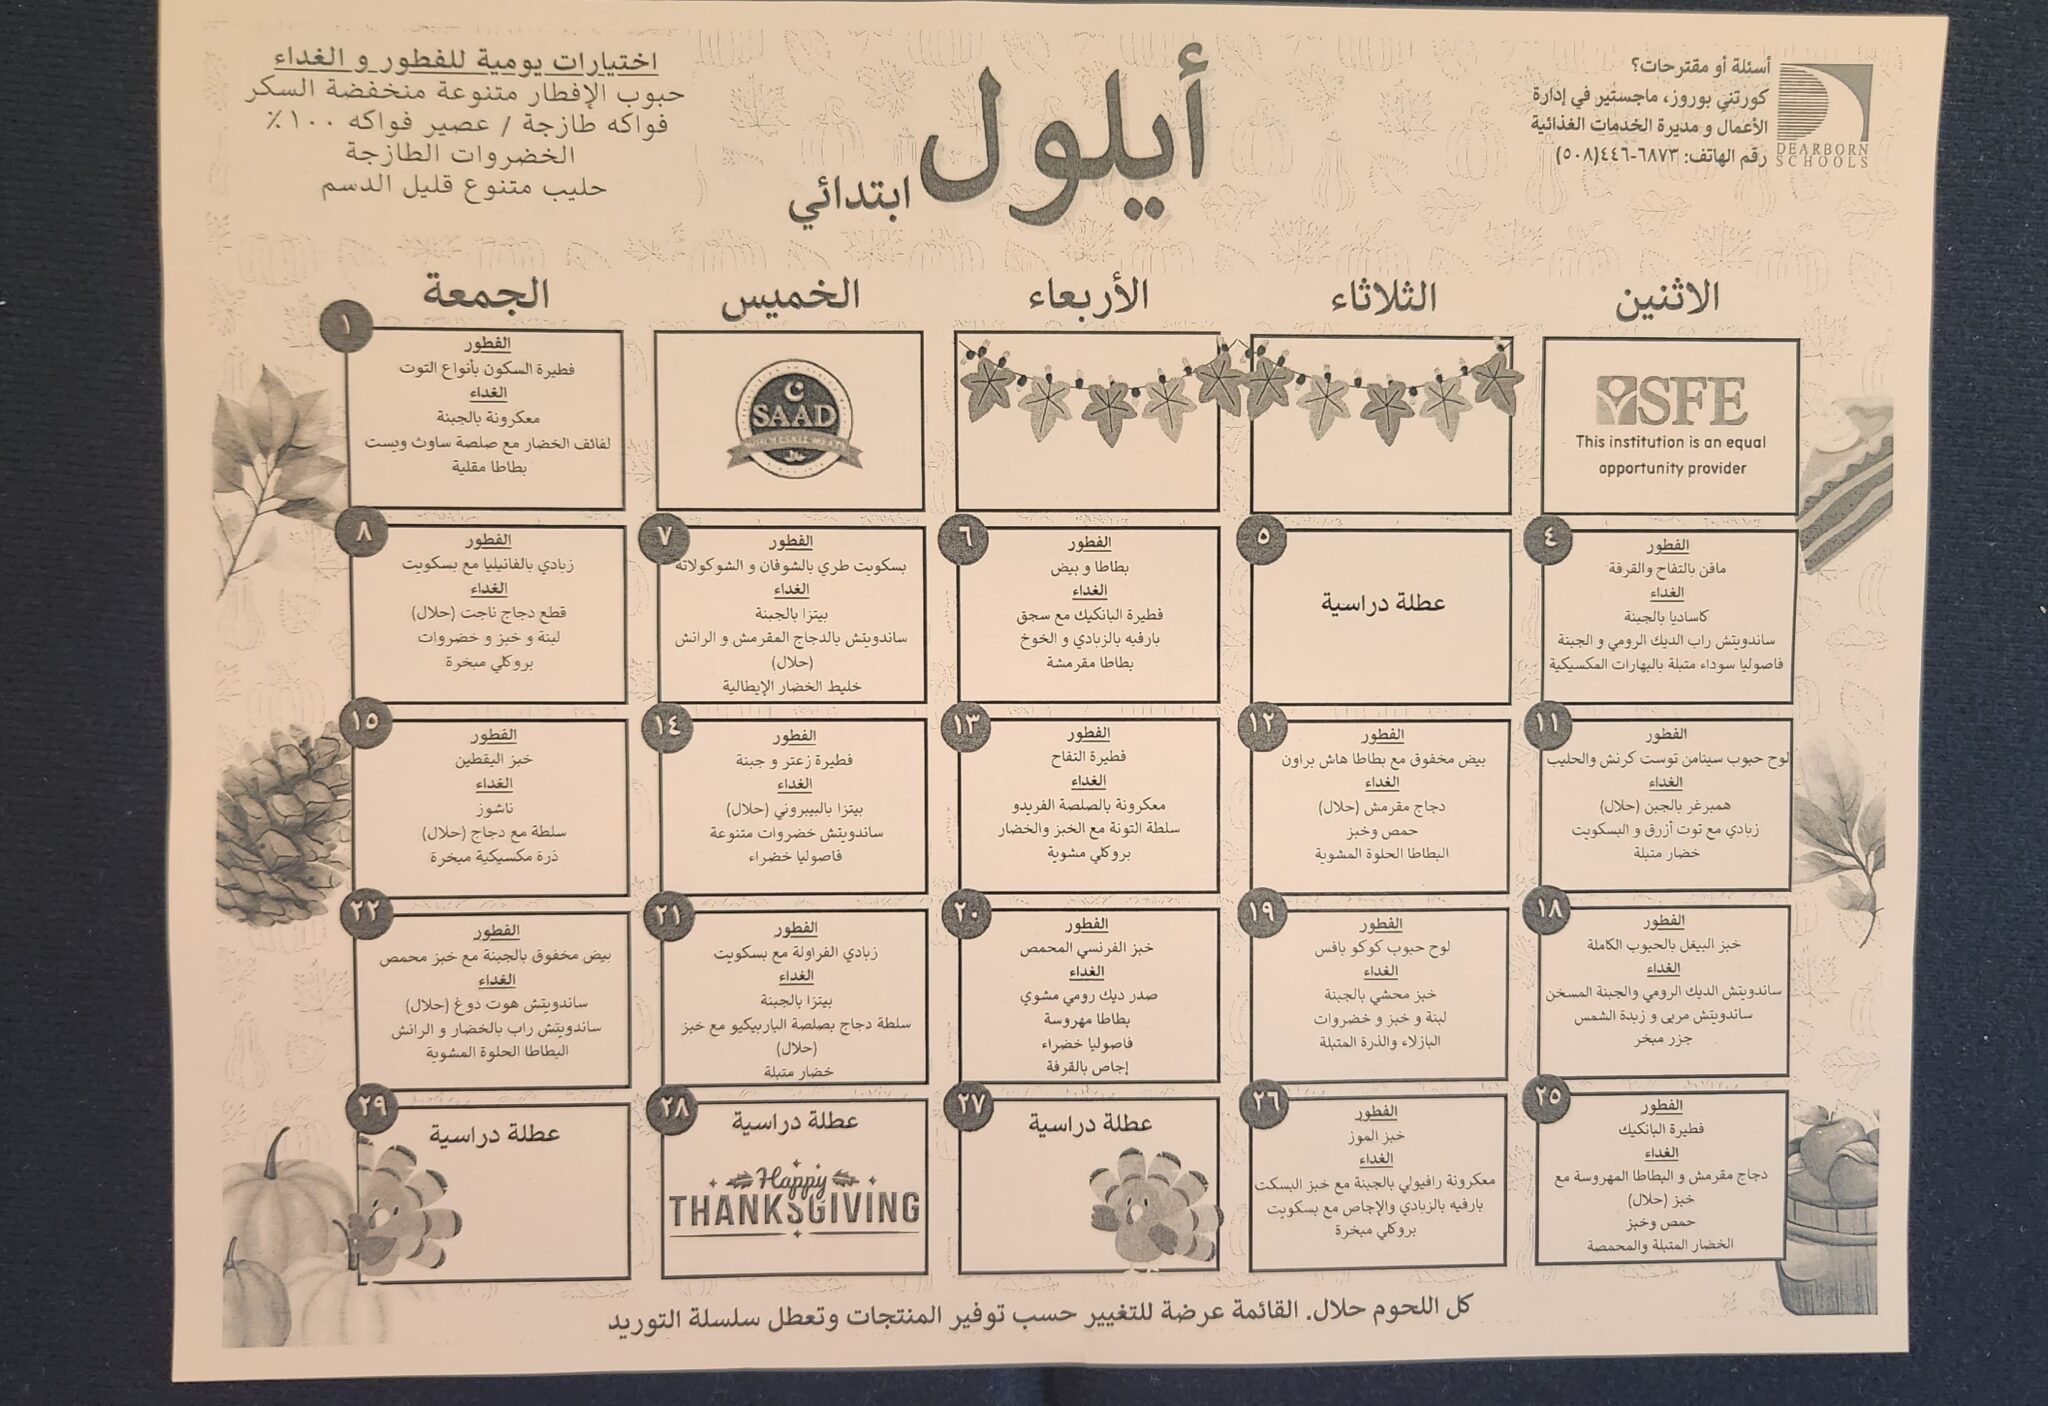 أسئلة أو مقترحات؟
كورتني بوروز، ماجستير في إدارة
الأعمال و مديرة الخدمات الغذائية
رقم الهاتف: ٦٨٧٣-٤٤٦(٥٠٨)
DEARBORN
SCHOOLS
أيلول
ابتدائي
اختيارات يومية للفطور و الغداء
حبوب الإفطار متنوعة منخفضة السكر
فواكه طازجة / عصير فواكه ١٠٠٪
الخضروات الطازجة
حليب متنوع قليل الدسم
الاثنين
الثلاثاء
الأربعاء
الخميس
الجمعة
SFE
This institution is an equal
opportunity provider
SAAD
١
الفطور
فطيرة السكون بأنواع التوت
الغداء
معكرونة بالجبنة
لفائف الخضار مع صلصة ساوث ويست
بطاطا مقلية
٤
الفطور
مافن بالتفاح والقرفة
الغداء
كاساديا بالجبنة
ساندويتش راب الديك الرومي و الجبنة
فاصوليا سوداء متبلة بالبهارات المكسيكية
٥
عطلة دراسية
٦
الفطور
بطاطا و بيض
الغداء
فطيرة البانكيك مع سجق
بارفيه بالزبادي و الخوخ
بطاطا مقرمشة
٧
الفطور
بسكويت طري بالشوفان و الشوكولاتة
الغداء
بيتزا بالجبنة
ساندويتش بالدجاج المقرمش و الرانش
(حلال)
خليط الخضار الإيطالية
٨
الفطور
زبادي بالفانيليا مع بسكويت
الغداء
قطع دجاج ناجت (حلال)
لبنة و خبز و خضروات
بروكلي مبخرة
١١
الفطور
لوح حبوب سينامن توست كرنش والحليب
الغداء
همبرغر بالجبن (حلال)
زبادي مع توت أزرق و البسكويت
خضار متبلة
١٢
الفطور
بيض مخفوق مع بطاطا هاش براون
الغداء
دجاج مقرمش (حلال)
حمص وخبز
البطاطا الحلوة المشوية
١٣
الفطور
فطيرة التفاح
الغداء
معكرونة بالصلصة الفريدو
سلطة التونة مع الخبز والخضار
بروكلي مشوية
١٤
الفطور
فطيرة زعتر و جبنة
الغداء
بيتزا بالبيبروني (حلال)
ساندويتش خضروات متنوعة
فاصوليا خضراء
١٥
الفطور
خبز اليقطين
الغداء
ناشوز
سلطة مع دجاج (حلال)
ذرة مكسيكية مبخرة
١٨
الفطور
خبز البيغل بالحبوب الكاملة
الغداء
ساندويتش الديك الرومي والجبنة المسخن
ساندويتش مربى و زبدة الشمس
جزر مبخر
١٩
الفطور
لوح حبوب كوكو بافس
الغداء
خبز محشي بالجبنة
لبنة و خبز و خضروات
البازلاء والذرة المتبلة
٢٠
الفطور
خبز الفرنسي المحمص
الغداء
صدر ديك رومي مشوي
بطاطا مهروسة
فاصوليا خضراء
إجاص بالقرفة
٢١
الفطور
زبادي الفراولة مع بسكويت
الغداء
بيتزا بالجبنة
سلطة دجاج بصلصة الباربيكيو مع خبز
(حلال)
خضار متبلة
٢٢
الفطور
بيض مخفوق بالجبنة مع خبز محمص
الغداء
ساندويتش هوت دوغ (حلال)
ساندويتش راب بالخضار و الرانش
البطاطا الحلوة المشوية
٢٥
الفطور
فطيرة البانكيك
الغداء
دجاج مقرمش و البطاطا المهروسة مع
خبز (حلال)
حمص وخبز
الخضار المتبلة والمحمصة
٢٦
الفطور
خبز الموز
الغداء
معكرونة رافيولي بالجبنة مع خبز البسكت
بارفيه بالزبادي والإجاص مع بسكويت
بروكلي مبخرة
٢٧
عطلة دراسية
٢٨
عطلة دراسية
Happy
THANKSGIVING
٢٩
عطلة دراسية
كل اللحوم حلال. القائمة عرضة للتغيير حسب توفير المنتجات وتعطل سلسلة التوريد